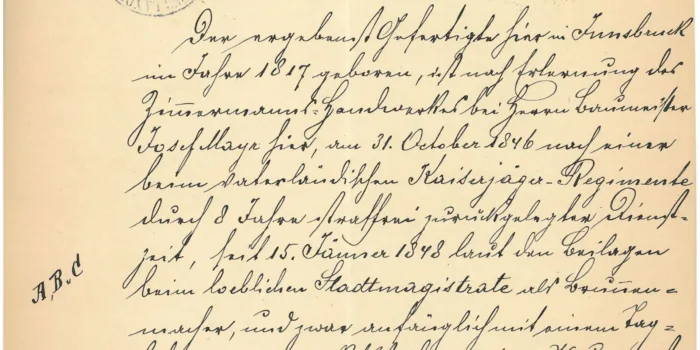 Der ergebenst Gefertigte hier in Innsbruck
im Jahre 1817 geboren, ist nach Erlernung des
Zimmermanns-Handwerkes bei Herrn Baumeister
Josef Mayr hier, am 31. October 1846 nach einer
beim vaterländischen Kaiserjäger-Regimente
durch 8 Jahre straffrei zurückgelegter Dienst-
zeit, seit 15. Jänner 1848 laut den Beilagen
A, B, C
beim loeblichen Stadtmagistrate als Brunnen-
macher, und zwar anfänglich mit einem Tag-